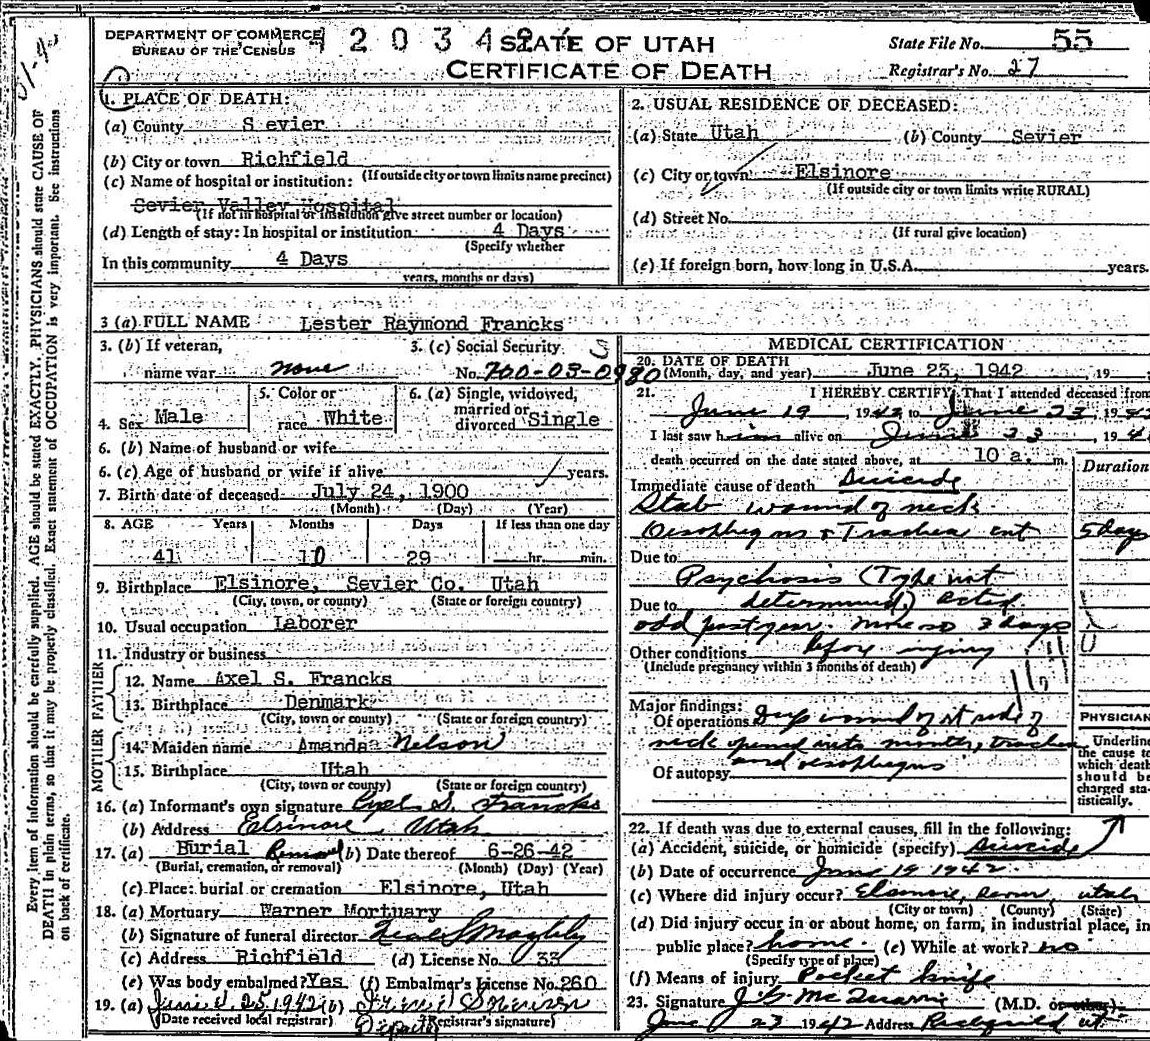 DEPARTMENT OF COMMERCE
BUREAU OF THE CENSUS
STATE OF UTAH
CERTIFICATE OF DEATH
State File No. 55
Registrar's No. 27
1. PLACE OF DEATH:
(a) County Sevier
(b) City or town Richfield
(If outside city or town limits name precinct)
(c) Name of hospital or institution:
Sevier Valley Hospital
(If not in hospital or institution give street number or location)
(d) Length of stay: In hospital or institution 4 Days
(Specify whether
In this community 4 Days
years, months or days)
2. USUAL RESIDENCE OF DECEASED:
(a) State Utah (b) County Sevier
(c) City or town Elsinore
(If outside city or town limits write RURAL)
(d) Street No.
(If rural give location)
(e) If foreign born, how long in U.S.A. years.
3 (a) FULL NAME Lester Raymond Francks
3. (b) If veteran, 3. (c) Social Security
name war none No. 700-03-0980
4. Sex Male
5. Color or race White
6. (a) Single, widowed, married or divorced Single
6. (b) Name of husband or wife
6. (c) Age of husband or wife if alive years.
7. Birth date of deceased July 24, 1900
(Month) (Day) (Year)
8. AGE Years Months Days If less than one day
41 10 29 hr. min.
9. Birthplace Elsinore, Sevier Co. Utah
(City, town, or county) (State or foreign country)
10. Usual occupation Laborer
11. Industry or business
FATHER
12. Name Axel S. Francks
13. Birthplace Denmark
(City, town or county) (State or foreign country)
MOTHER
14. Maiden name Amanda Nelson
15. Birthplace Utah
(City, town or county) (State or foreign country)
16. (a) Informant's own signature Axel S. Francks
(b) Address Elsinore, Utah
17. (a) Burial Removal (b) Date thereof 6-26-42
(Burial, cremation, or removal) (Month) (Day) (Year)
(c) Place: burial or cremation Elsinore, Utah
18. (a) Mortuary Warner Mortuary
(b) Signature of funeral director
(c) Address Richfield (d) License No. 33
(e) Was body embalmed? Yes (f) Embalmer's License No. 260
19. (a) 1942 (b)
(Date received local registrar) Deputy Registrar's signature)
MEDICAL CERTIFICATION
20. DATE OF DEATH
(Month, day, and year) June 23, 1942 19
21. I HEREBY CERTIFY, That I attended deceased from
June 19, 1942 to June 23, 1942
I last saw him alive on June 23, 194
death occurred on the date stated above, at 10 a. m.
Duration
Immediate cause of death Suicide
Stab wound of neck
Oesophegus & Trachea cut 5 days
Due to Psychosis (Type not
Due to determined) Acted
odd past year. More so 3 days
Other conditions before injury
(Include pregnancy within 3 months of death)
Major findings:
Of operations Deep wound of rt side of
neck opened into mouth, trachea
and oesophegus
Of autopsy
PHYSICIAN
Underline
the cause to
which death
should be
charged sta-
tistically.
22. If death was due to external causes, fill in the following:
(a) Accident, suicide, or homicide (specify) Suicide
(b) Date of occurrence June 19 1942
(c) Where did injury occur? Elsinore, Sevier, Utah
(City or town) (County) (State)
(d) Did injury occur in or about home, on farm, in industrial place, in
public place? home (e) While at work? no
(Specify type of place)
(f) Means of injury Pocket knife
23. Signature J. G. McQuarrie (M.D. or other)
June 23 1942 Address Richfield Ut
Every item of information should be carefully supplied. AGE should be stated EXACTLY. PHYSICIANS should state CAUSE OF
DEATH in plain terms, so that it may be properly classified. Exact statement of OCCUPATION is very important. See instructions
on back of certificate.